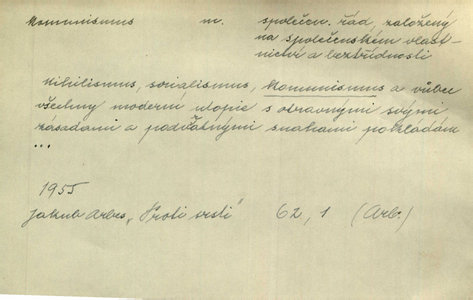 Komunismus m. společen. řád, založený
na společenském vlast-
nictví a beztřídnosti
Nihilismus, socialismus, komunismus a vůbec
všechny moderní utopie s otravnými svými
zásadami a podvratnými snahami pokládám
...
1955
Jakub Arbes, "Proti vrstí" 62, 1 (Arb.)